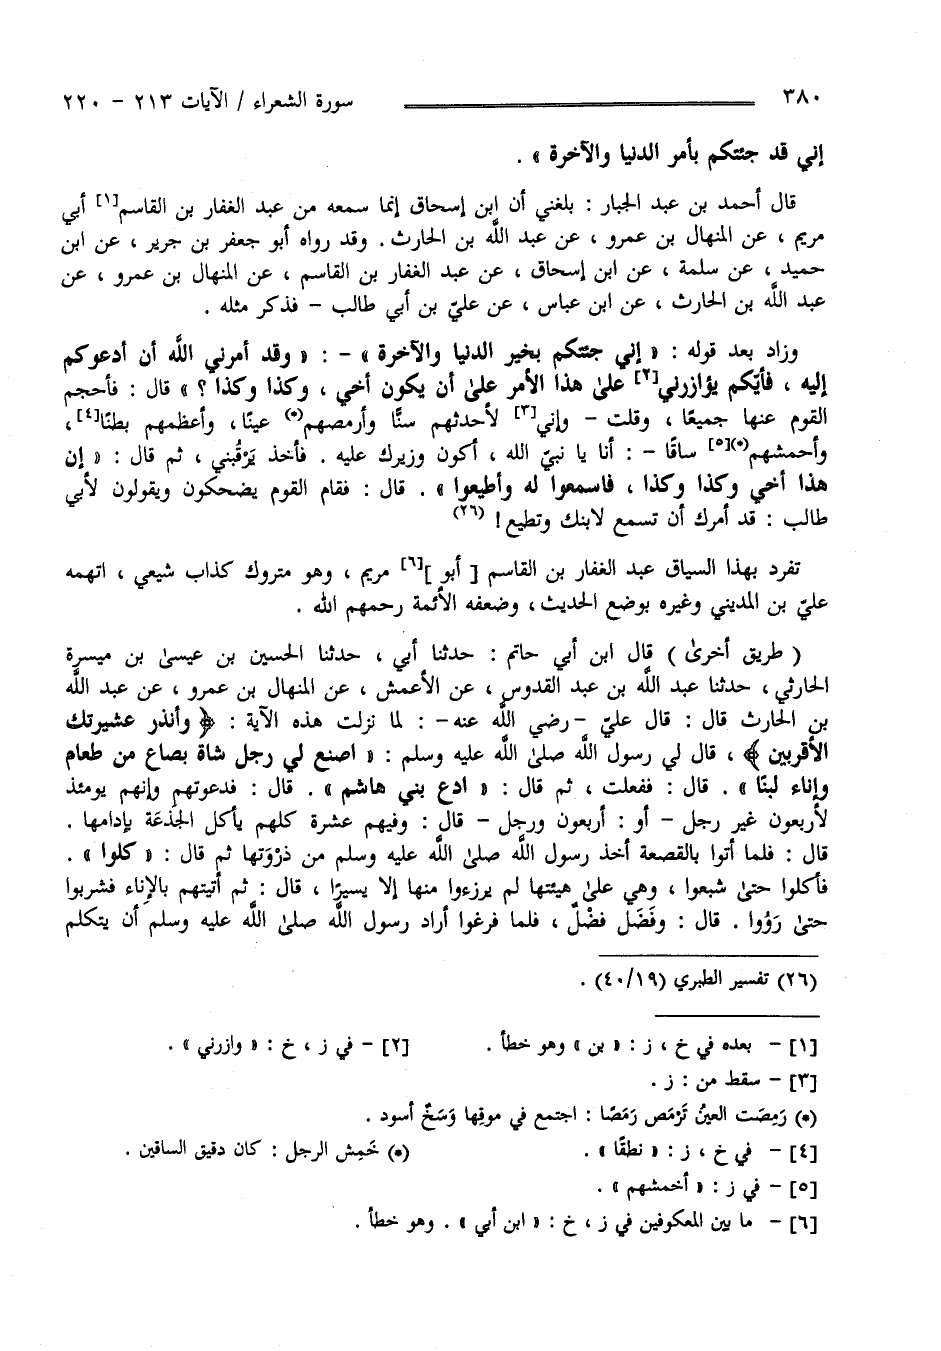 ٣٨٠ سورة الشعراء / الآيات ٢١٣ - ٢٢٠
إني قد جئتكم بأمر الدنيا والآخرة » .
قال أحمد بن عبد الجبار : بلغني أن ابن إسحاق إنما سمعه من عبد الغفار بن القاسم[١] أبي
مريم ، عن المنهال بن عمرو ، عن عبد اللَّه بن الحارث. وقد رواه أبو جعفر بن جرير ، عن ابن
حميد ، عن سلمة ، عن ابن إسحاق ، عن عبد الغفار بن القاسم ، عن المنهال بن عمرو ، عن
عبد اللَّه بن الحارث ، عن ابن عباس ، عن عليّ بن أبي طالب - فذكر مثله .
وزاد بعد قوله : « إني جئتكم بخير الدنيا والآخرة » - : « وقد أمرني اللَّه أن أدعوكم
إليه ، فأيّكم يؤازرني[٢] علىٰ هذا الأمر علىٰ أن يكون أخي ، وكذا وكذا ؟ » قال : فأحجم
القوم عنها جميعًا ، وقلت - وإني[٣] لأحدثهم سنًّا وأرمصهم(*) عينًا، وأعظمهم بطنًا[٤]،
وأحمشهم(*)[٥] ساقًا - : أنا يا نبيّ الله ، أكون وزيرك عليه . فأخذ يَرْقُبني ، ثم قال : « إن
هذا أخي وكذا وكذا ، فاسمعوا له وأطيعوا » . قال : فقام القوم يضحكون ويقولون لأبي
طالب : قد أمرك أن تسمع لابنك وتطيع! (٢٦)
تفرد بهذا السياق عبد الغفار بن القاسم [ أبو ][٦] مريم ، وهو متروك كذاب شيعي ، اتهمه
عليّ بن المديني وغيره بوضع الحديث، وضعفه الأئمة رحمهم الله .
( طريق أخرىٰ ) قال ابن أبي حاتم : حدثنا أبي ، حدثنا الحسين بن عيسىٰ بن ميسرة
الحارثي ، حدثنا عبد اللَّه بن عبد القدوس ، عن الأعمش ، عن المنهال بن عمرو ، عن عبد اللَّه
بن الحارث قال : قال عليّ -رضي اللَّه عنه- : لما نزلت هذه الآية : ﴿ وأنذر عشيرتك
الأقربين ﴾ ، قال لي رسول اللَّه صلىٰ اللَّه عليه وسلم : « اصنع لي رجل شاة بصاع من طعام
وإناء لبنًا » . قال : ففعلت ، ثم قال : « ادع بني هاشم » . قال : فدعوتهم وإنهم يومئذ
لأربعون غير رجل - أو : أربعون ورجل - قال : وفيهم عشرة كلهم يأكل الجذعَة بإدامها .
قال : فلما أتوا بالقصعة أخذ رسول اللَّه صلىٰ اللَّه عليه وسلم من ذرْوَتها ثم قال : « كلوا » .
فأكلوا حتىٰ شبعوا ، وهي علىٰ هيئتها لم يرزءوا منها إلا يسيرًا ، قال : ثم أتيتهم بالإناء فشربوا
حتىٰ رَوُوا . قال : وفَضَل فضْلٌ ، فلما فرغوا أراد رسول اللَّه صلىٰ اللَّه عليه وسلم أن يتكلم
(٢٦) تفسير الطبري (٤٠/١٩) .
[١] - بعده في خ ، ز : « بن » وهو خطأ . [٢] - في ز ، خ : « وازرني » .
[٣] - سقط من : ز .
(*) رَمِصَت العينُ تَرْمَص رَمَصًا : اجتمع في موقِها وَسَخٌ أسود .
[٤] - في خ ، ز : « نطقًا » . (*) حَمِش الرجل : كان دقيق الساقين .
[٥] - في ز : « أخمشهم » .
[٦] - ما بين المعكوفين في ز ، خ : « ابن أبي » . وهو خطأ .